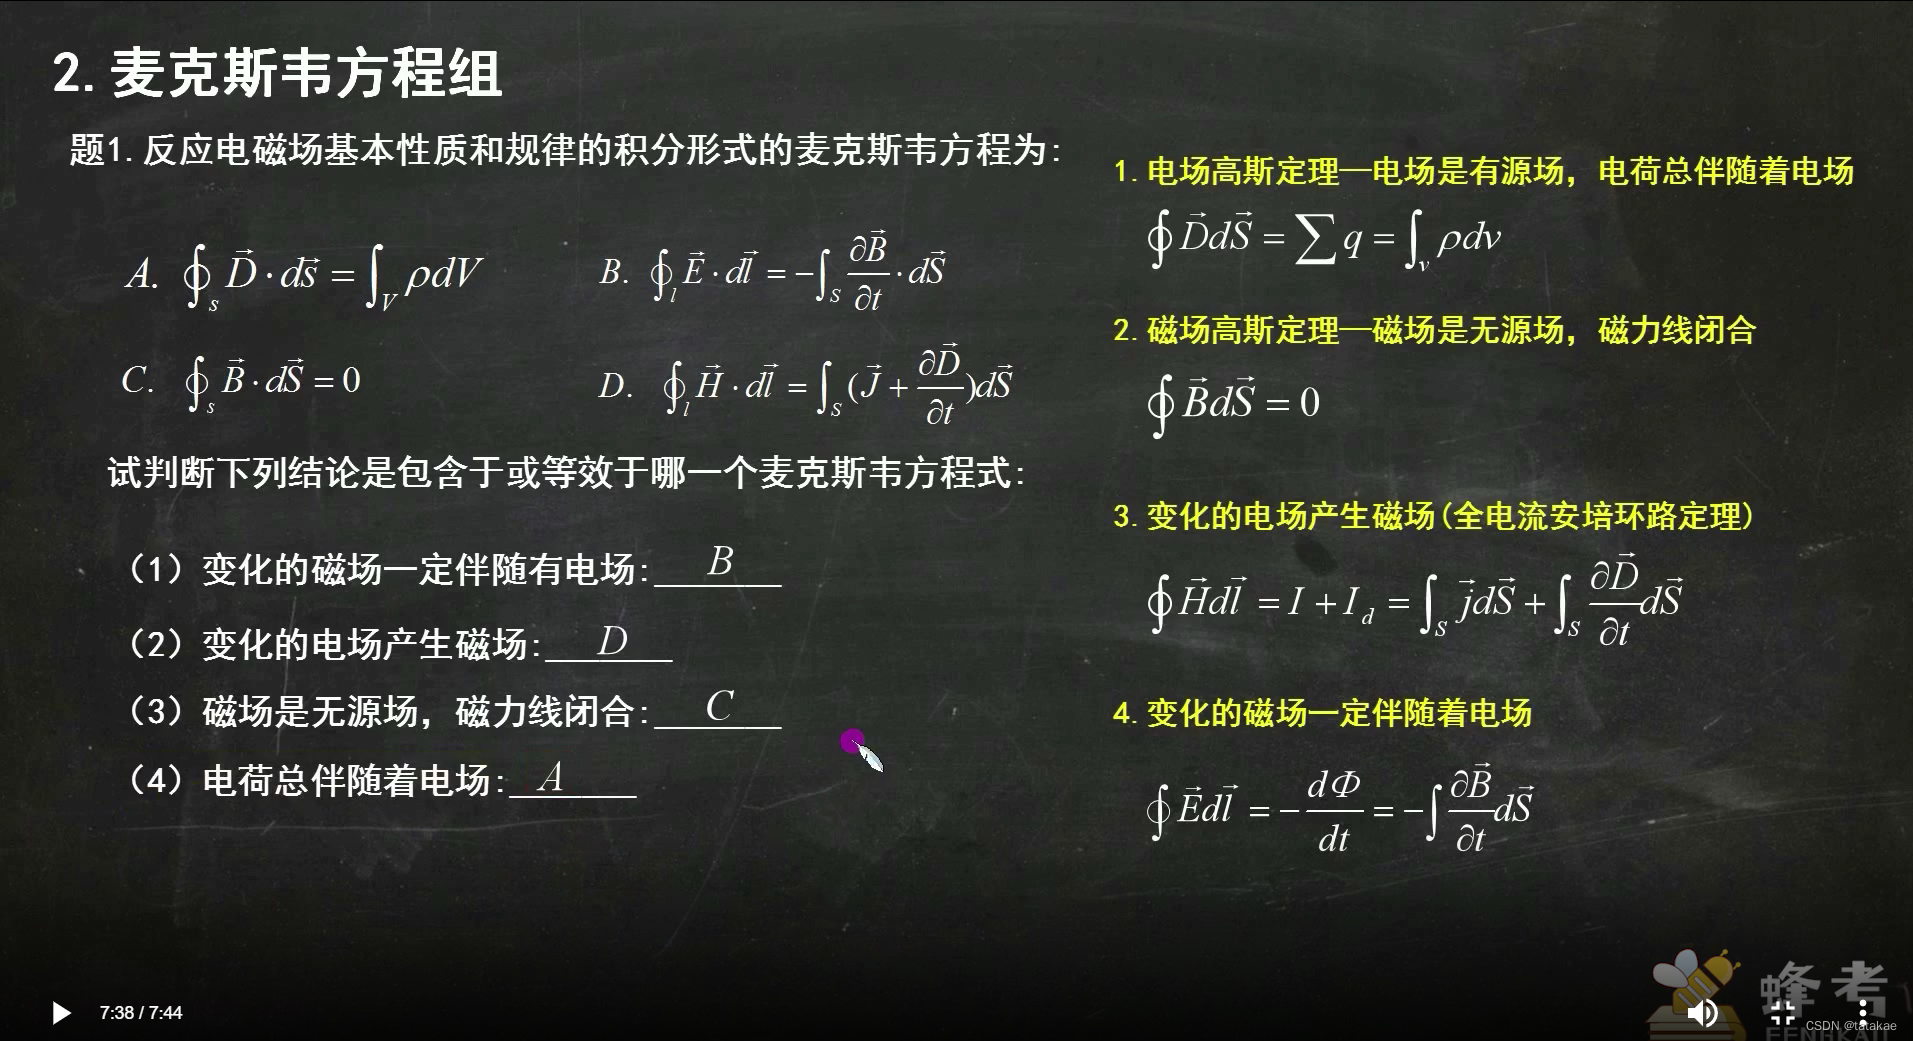 2.麦克斯韦方程组
题1.反应电磁场基本性质和规律的积分形式的麦克斯韦方程为:
A. ∮_s D⃗·ds⃗ = ∫_V ρdV
B. ∮_l E⃗·dl⃗ = -∫_S ∂B⃗/∂t·dS⃗
C. ∮_s B⃗·dS⃗ = 0
D. ∮_l H⃗·dl⃗ = ∫_S (J⃗ + ∂D⃗/∂t)dS⃗
试判断下列结论是包含于或等效于哪一个麦克斯韦方程式:
（1）变化的磁场一定伴随有电场:___B___
（2）变化的电场产生磁场:___D___
（3）磁场是无源场，磁力线闭合:___C___
（4）电荷总伴随着电场:___A___
1.电场高斯定理—电场是有源场，电荷总伴随着电场
∮D⃗dS⃗ = ∑q = ∫_v ρdv
2.磁场高斯定理—磁场是无源场，磁力线闭合
∮B⃗dS⃗ = 0
3.变化的电场产生磁场(全电流安培环路定理)
∮H⃗dl⃗ = I + I_d = ∫_S j⃗dS⃗ + ∫_S ∂D⃗/∂t dS⃗
4.变化的磁场一定伴随着电场
∮E⃗dl⃗ = -dΦ/dt = -∫∂B⃗/∂t dS⃗
7:38 / 7:44
蜂考
CSDN @tatakae